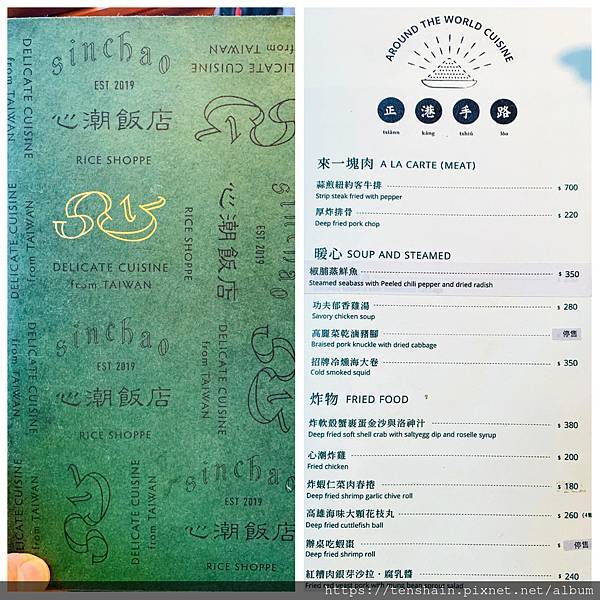 sinchao
EST 2019
心潮飯店
RICE SHOPPE
DELICATE CUISINE
from TAIWAN
DELICATE CUISINE
from TAIWAN
sinchao
EST 2019
心潮飯店
RICE SHOPPE
DELICATE CUISINE
from TAIWAN
sinchao
心潮飯店
RICE SHOPPE
DELICATE CUISINE
from TAIWAN
DELICATE CUISINE
from TAIWAN
sinchao
EST 2019
心潮飯店
RICE SHOPPE
AROUND THE WORLD CUISINE
正 港 手 路
tsiànn káng tshiú lōo
來一塊肉 A LA CARTE (MEAT)
蒜煎紐約客牛排 $ 700
Strip steak fried with pepper
厚炸排骨 $ 220
Deep fried pork chop
暖心 SOUP AND STEAMED
椒脯蒸鮮魚 $ 350
Steamed seabass with Peeled chili pepper and dried radish
功夫郁香雞湯 $ 280
Savory chicken soup
高麗菜乾滷豬腳 停售
Braised pork knuckle with dried cabbage
招牌冷燻海大卷 $ 350
Cold smoked squid
炸物 FRIED FOOD
炸軟殼蟹裹蛋金沙與洛神汁 $ 380
Deep fried soft shell crab with saltyegg dip and roselle syrup
心潮炸雞 $ 200
Fried chicken
炸蝦仁菜肉春捲 $ 180
Deep fried shrimp garlic chive roll
高雄海味大顆花枝丸 $ 260
Deep fried cuttlefish ball
辦桌吃蝦棗 停售
Deep fried shrimp roll
紅糟肉銀芽沙拉．腐乳醬 $ 240
Fried red yeast pork with mung bean sprout salad
https://tenshain.pixnet.net/album